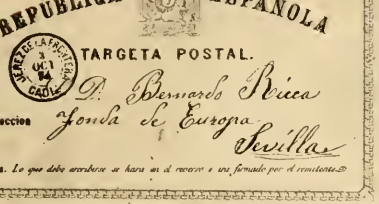 REPUBLICA ESPAÑOLA
JEREZ DE LA FRONTERA
OCT
74
CADIZ
TARGETA POSTAL.
D. Bernardo Ricca
eccion Fonda de Europa
Sevilla
a. Lo que debe escribirse se hara en el reverso e ira firmado por el remitente.